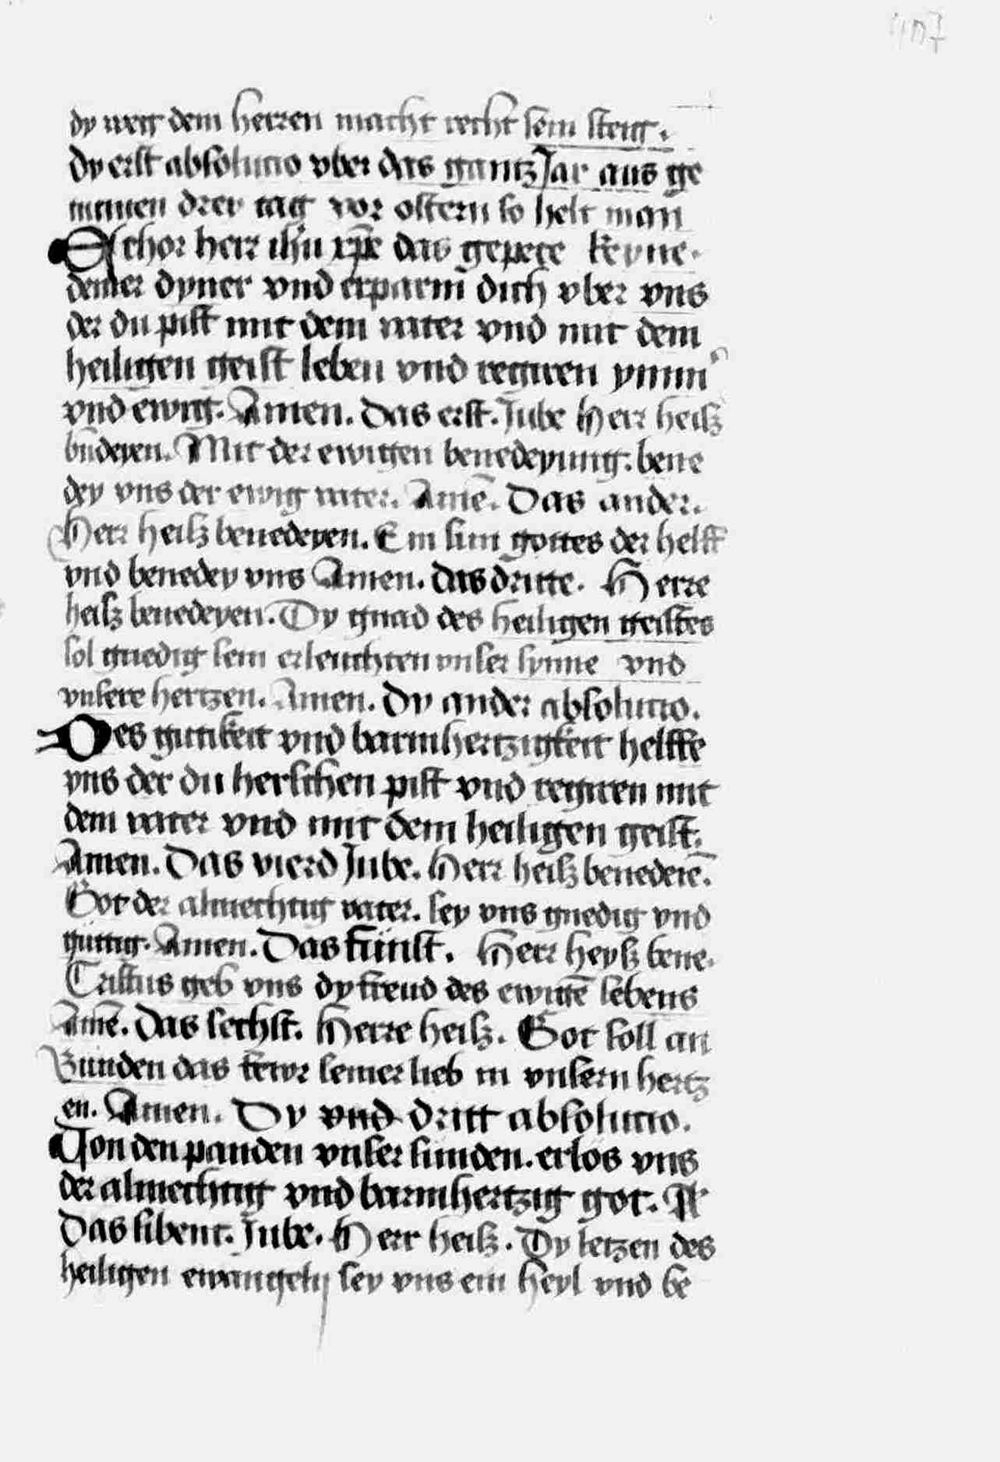 407
dy weg dem herren macht recht sein steig.
Dy erst absolutio vber das gantz Jar aus ge
numen drey tag vor ostern so helt man
Schor herr ihū xp̄e das gepete keyne.
deiner dyner vnd erparm dich vber vns
der du pist mit dem vater vnd mit dem
heiligen geist leben vnd regiren ymm̄
vnd ewig. Amen. Das erst. Jube Herr heisz
bn̄deyen. Mit der ewigen benedeyung. bene
dey vns der ewig vater. Amē. Das ander.
Herr heisz benedeyen. Ein sun gottes der helff
vnd benedey vns Amen. das dritte. Herre
heisz benedeyen. Dy gnad des heiligen geistes
sol gnedig sein erleuchten vnser synne vnd
vnsere hertzen. Amen. Dy ander absolutio.
Des gutikeit vnd barmhertzigkeit helffe
vns der du herschen pist vnd regiren mit
dem vater vnd mit dem heiligen geist.
Amen. Das vierd Jube. Herr heisz benedeiē.
Got der almechtig vater. sey vns gnedig vnd
guttig. Amen. Das funfft. Herr heysz bene.
Cristus geb vns dy freud des ewigē lebens
Amē. Das sechst. Herre heisz. Got soll an
Zunden das fewr seiner lieb in vnsern hertz
en. Amen. Dy vnd dritt absolutio.
Von den panden vnser sunden. erlos vns
der almechtig vnd barmhertzig got. A
Das sibent. Jube. Herr heisz. Dy letzen des
heiligen ewangelij sey vns ein heyl vnd be